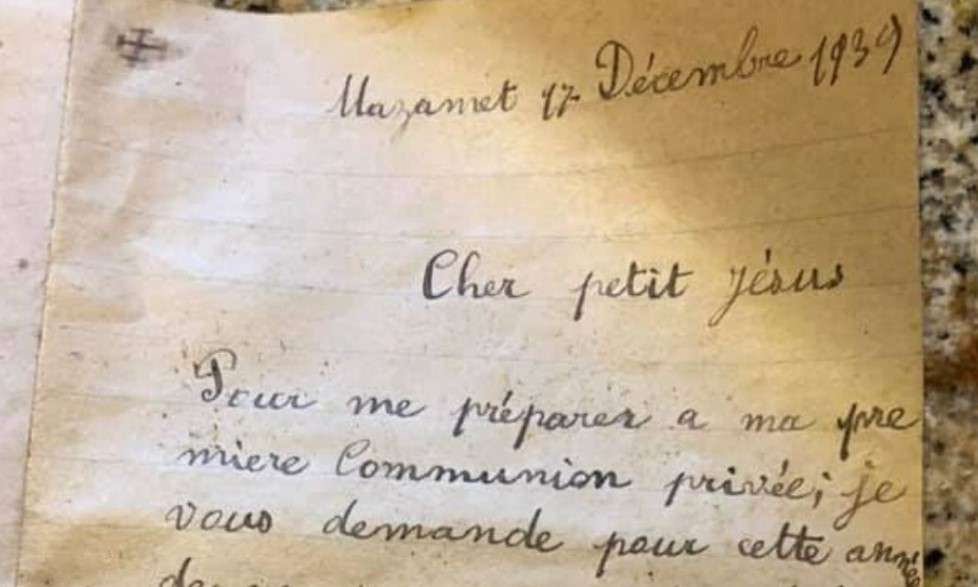 Mazamet 17 Décembre 1939
Cher petit jésus
Pour me préparer a ma pre
miere Communion privée; je
vous demande pour cette année